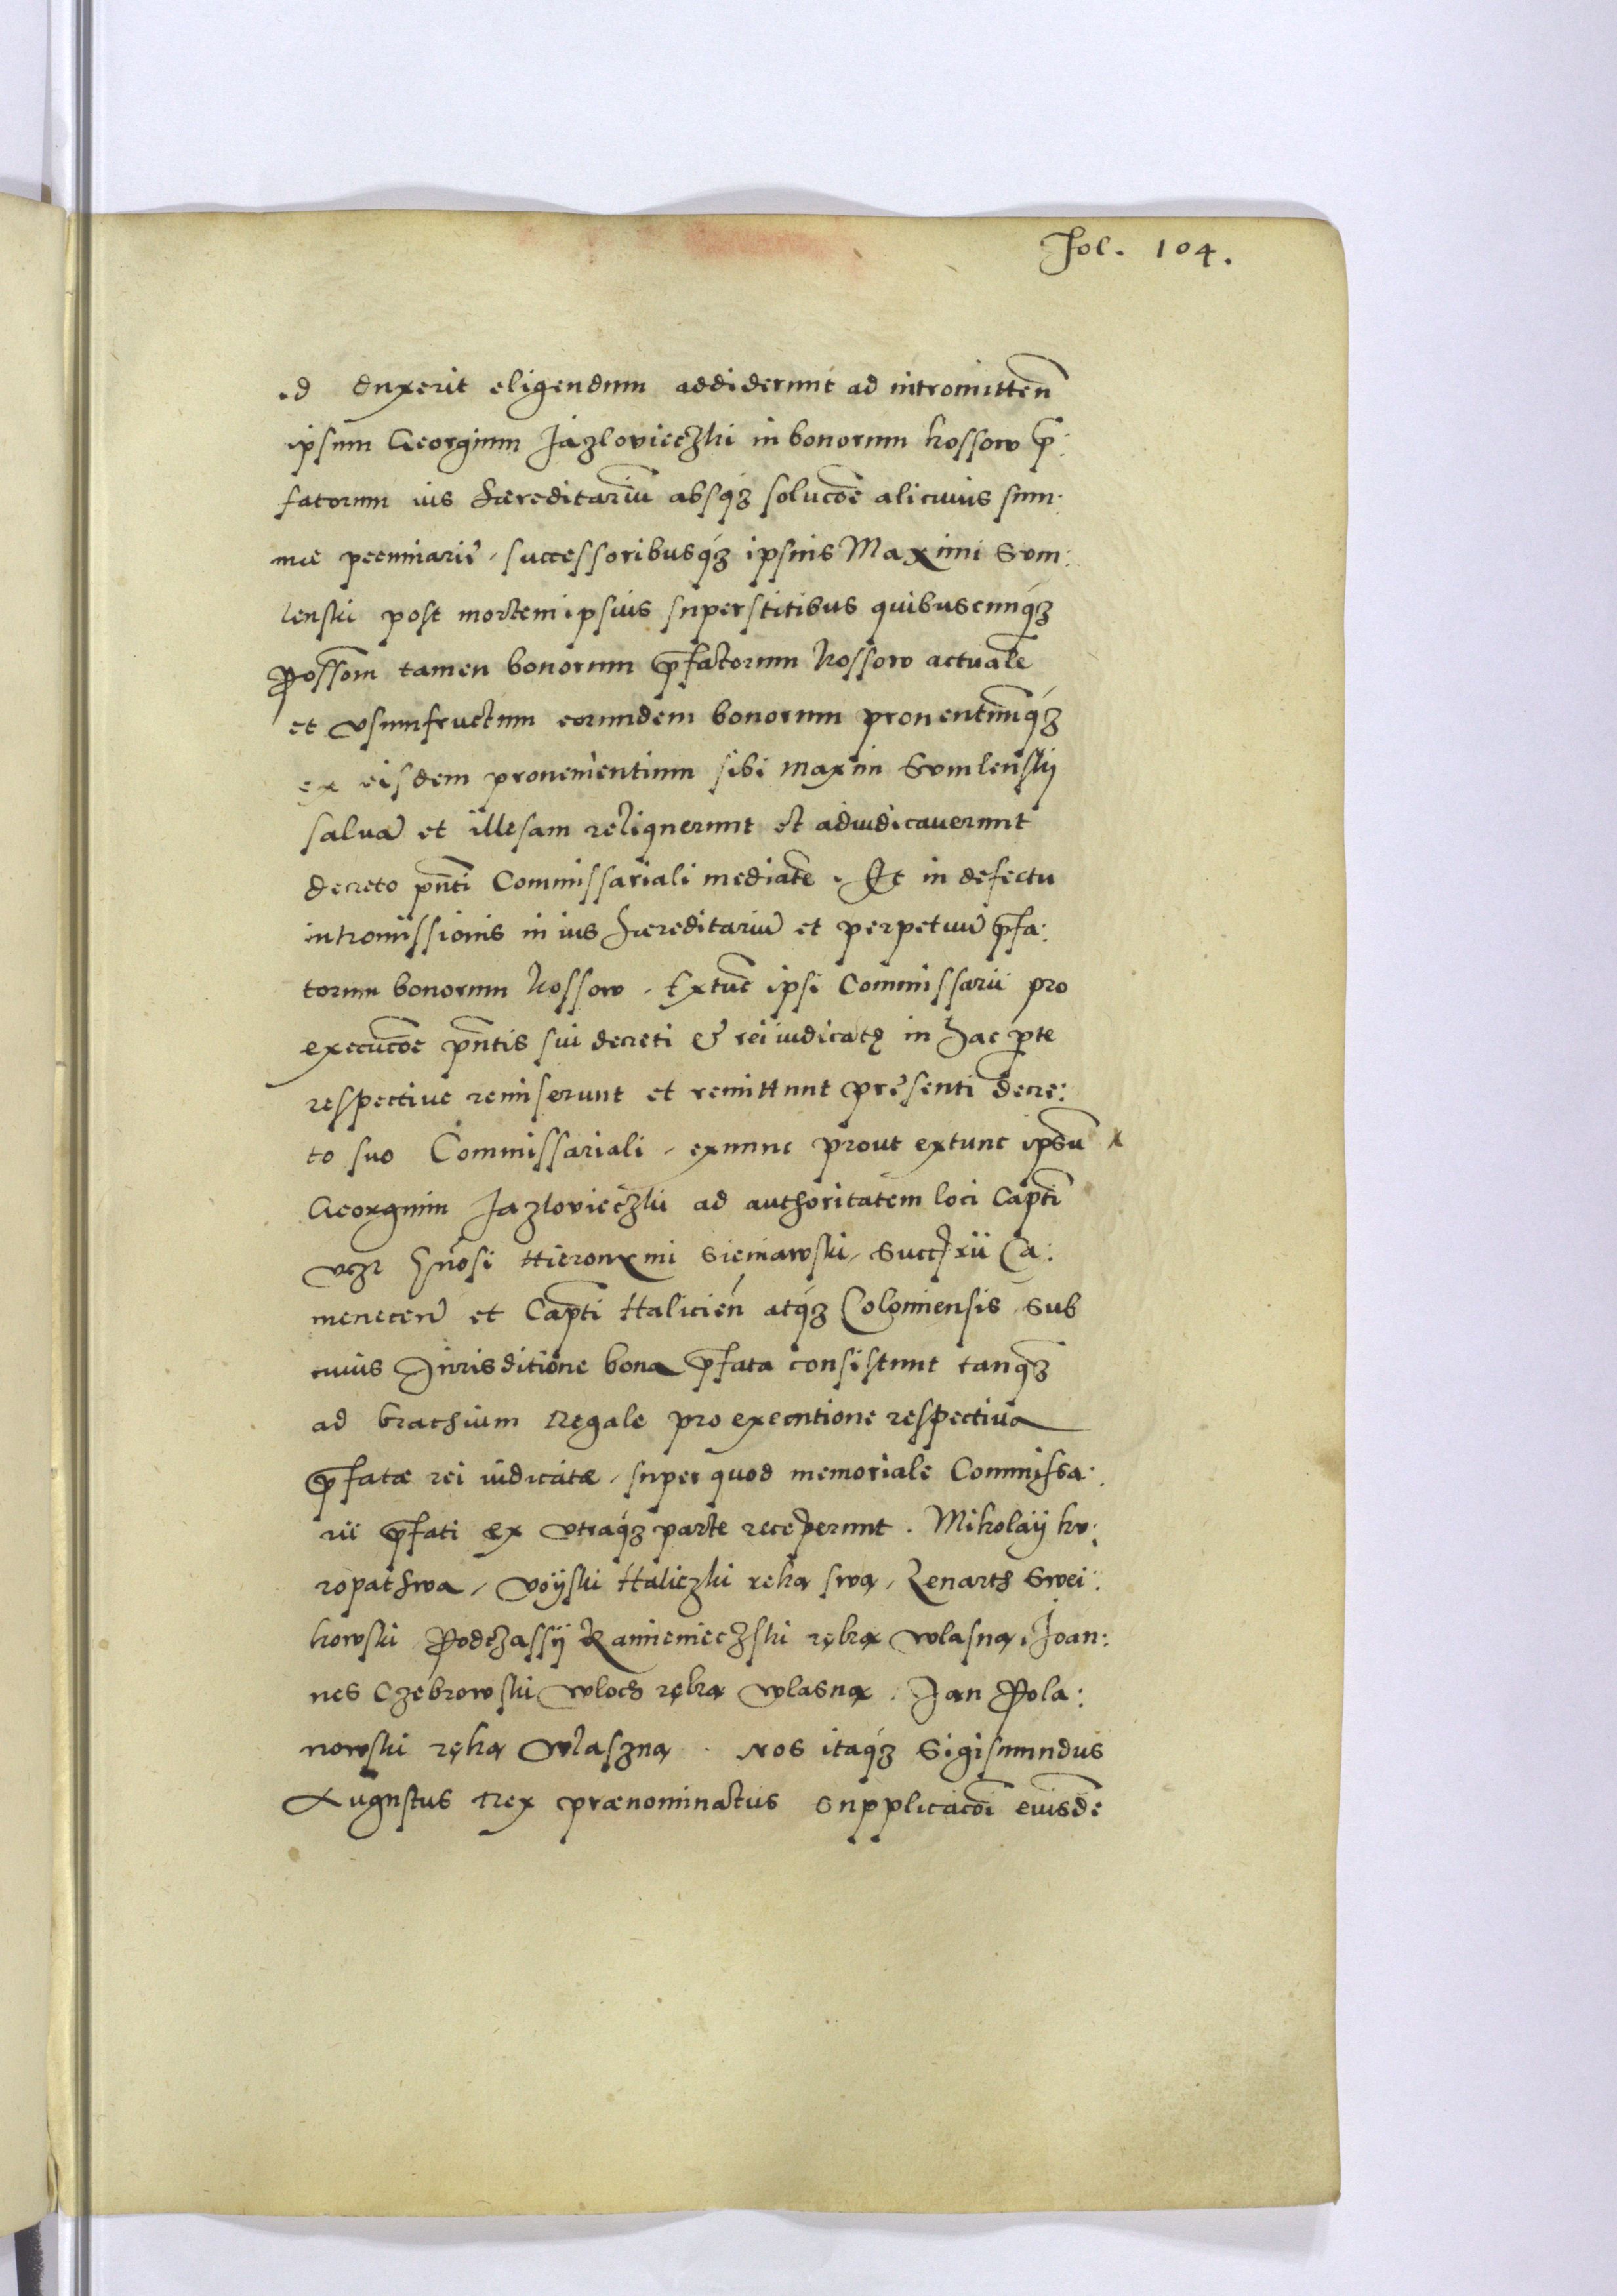 Fol. 104.
id duxerit eligendum addiderunt ad intromitten̄
ipsum Georgium Jazlovieczki in bonorum Kossow p̄:
fatorum ius hæreditariū absq3 solucōe alicuius sum:
mæ pecuniarie, successoribusq3 ipsius Maximi Somu:
lenski post mortem ipsius superstitibus quibuscunq3
Possom̄ tamen bonorum p̄fatorum Kossow actuale
et vsumfructum eorundem bonorum prouentumq3
ex eisdem prouenientium sibi Maxim Somlenskij
saluā et illesam reliquerunt et adiudicauerunt
decreto pn̄ti Commissariali mediāte. Et in defectu
intromissionis in ius hæreditariū et perpetuū p̄fa:
torum bonorum Kossow, Extūc ipsi Commissarii pro
execucōe pn̄tis sui decreti & rei iudicatę in hac pte
respectiue remiserunt et remittunt presenti decre:
to suo Commissariali, exnunc prout extunc ipsū x
Georgium Jazlovieczki ad authoritatem loci Capti
vtz gn̄osi Hieronymi Sieniawski, Succ̄rii Ca:
menecen̄ et Capti Halicien̄ atq3 Colomiensis sub
cuius Jurisditione bona p̄fata consistunt tanq3
ad brachium Regale pro executione respectiua
p̄fatæ rei iudicatæ, super quod memoriale Commissa:
rii p̄fati ex vtraq3 parte receperunt. Mikolaij ko:
ropathwa, Voÿski Haliczki reką swą, Lenarth Swei:
kowski Podczassÿ Kamienieczski ręką wlasną, Joan:
nes Czebrowski wloch ręką wlasną. Jan Pola:
nowski ręką wlaszną. Nos itaq3 Sigismundus
Augustus Rex prænominatus supplicacōi eiusdē